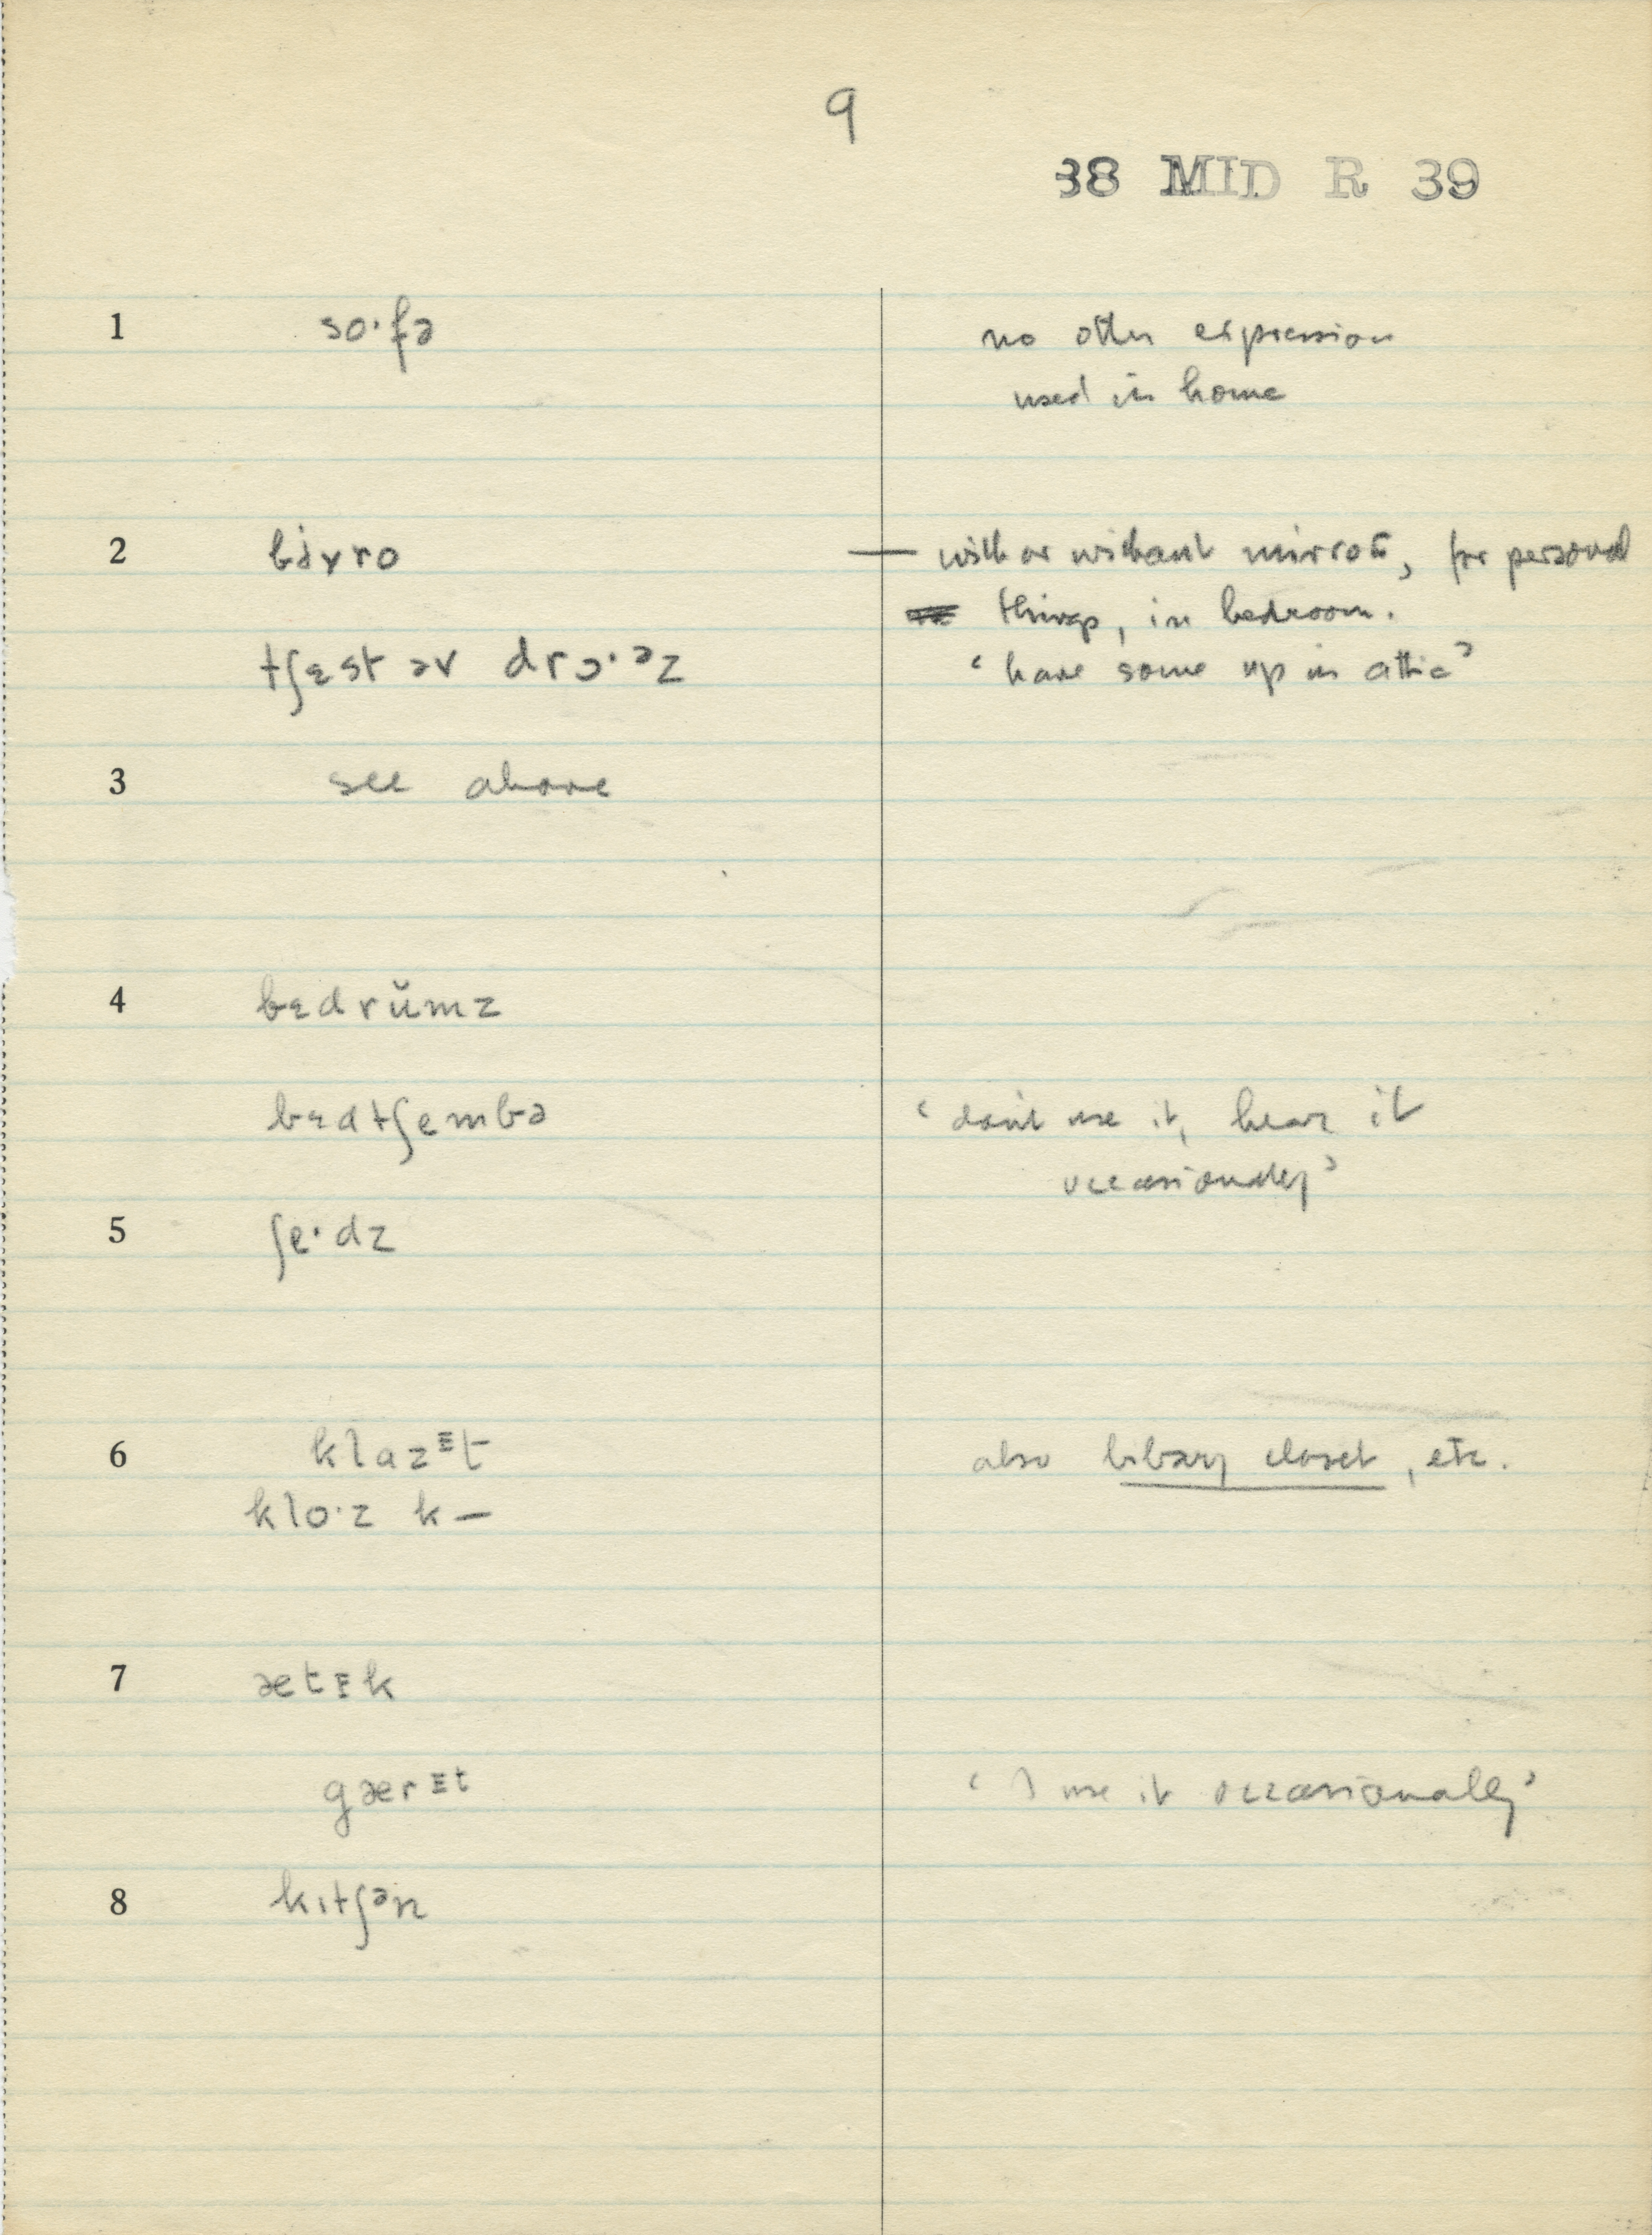 9
38 MID R 39
1 so·fə no other expression
used in home
2 — with or without mirror, for personal
things, in bedroom.
tʃɛst əv drɔ·ᵊz ‘have some up in attic’
3 see above
4 bɛdrŭmz
bɛdtʃembə ‘don't use it, hear it
occasionally’
5 ʃe·dz
6 klaz t also library closet, etc.
klo·z k—
7 æt k
gær t ‘I use it occasionally’
8 kɪtʃᵊn